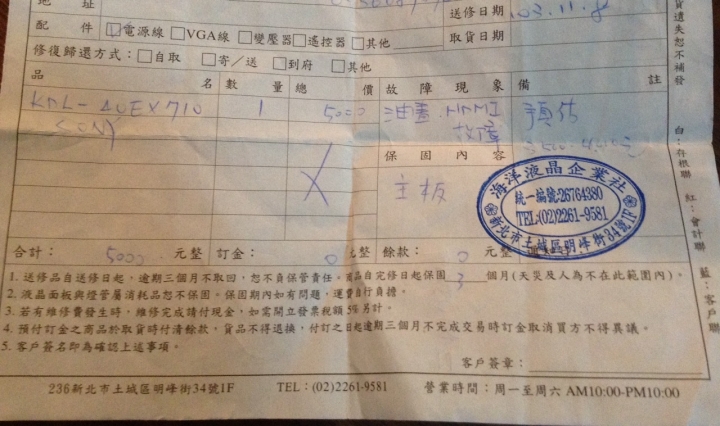 地 址
送修日期 103.11.8
配 件 電源線 VGA線 變壓器 遙控器 其他
取貨日期
修復歸還方式： 自取 寄／送 到府 其他
品 名 數 量 總 價 故 障 現 象 備 註
KDL-40EX710 1 5000 HDMI 預估
故障
保 固 內 容
主板
海洋液晶企業社
統一編號:26764380
TEL:(02)2261-9581
新北市土城區明峰街34號1F
合計： 5000 元整 訂金： 0 元整 餘款： 0 元整
1. 送修品自送修日起，逾期三個月不取回，恕不負保管責任。商品自完修日起保固 3 個月(天災及人為不在此範圍內)。
2. 液晶面板與燈管屬消耗品恕不保固。保固期內如有問題，運費自行負擔。
3. 若有維修費發生時，維修完成請付現金，如需開立發票稅額5%另計。
4. 預付訂金之商品於取貨時付清餘款，貨品不得退換，付訂之日起逾期三個月不完成交易時訂金取消買方不得異議。
5. 客戶簽名即為確認上述事項。
客戶簽章：
236新北市土城區明峰街34號1F TEL：(02)2261-9581 營業時間：周一至周六 AM10:00-PM10:00
貨遺失恕不補發
白：存根聯 紅：會計聯 藍：客戶聯